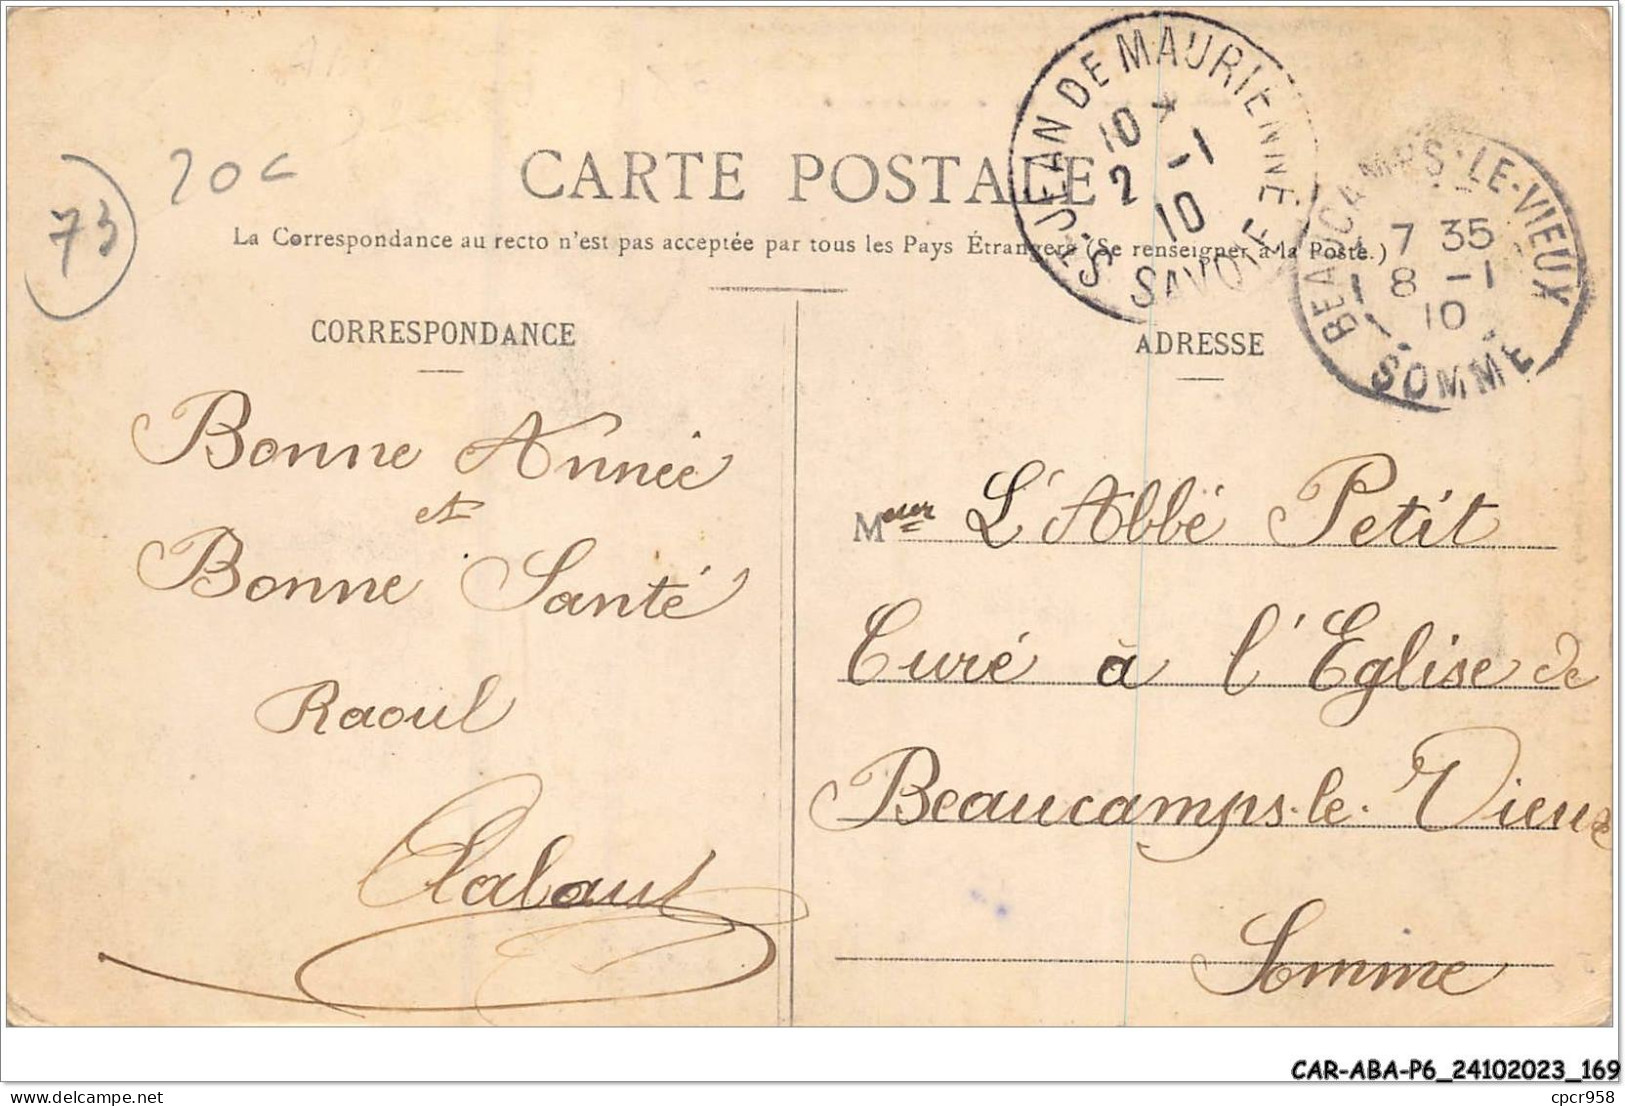 73
20c
CARTE POSTALE
La Correspondance au recto n'est pas acceptée par tous les Pays Étrangers (Se renseigner à la Poste.)
ST JEAN DE MAURIENNE
10 *
2 -1
10
SAVOIE
BEAUCAMPS-LE-VIEUX
7 35
8 -1
10
SOMME
CORRESPONDANCE
Bonne Année
et
Bonne Santé
Raoul
ADRESSE
Meur L'Abbé Petit
Curé à l'Eglise de
Beaucamps-le-Vieux
Somme
CAR-ABA-P6_24102023_169
cpcr958